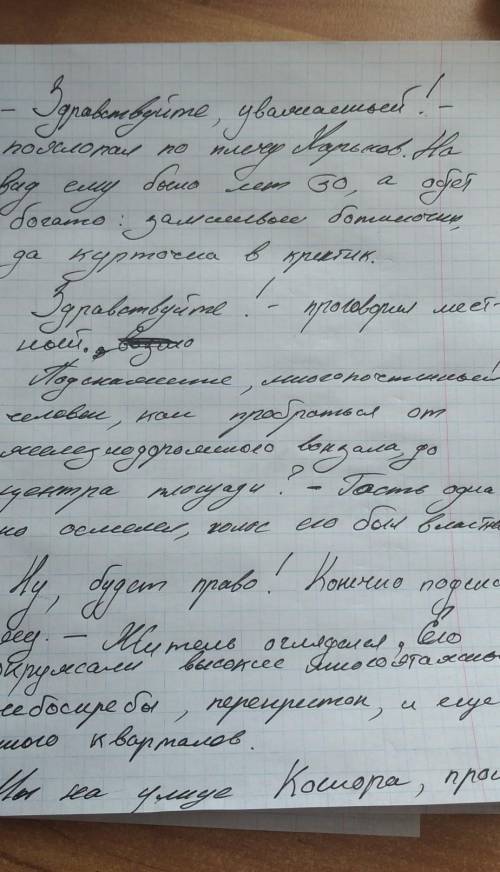 - Здравствуйте, уважаемый! -
похлопал по плечу Харьков. На
вид ему было лет 30, а одет
богато: замшевые ботиночки,
да курточка в крктик.
Здравствуйте! - проговорил мест-
ный.
Подскажите, многопочтиный
человек, как пробраться от
железнодорожного вокзала, до
центра площади? - Гость одна
но осмелел, голос его был властн
Ну, будет право! Конечно подска
жу. - Житель огляделся. Его
окружали высокие многоэтажные
небоскребы, перекристок, и еще
много кварталов.
Мы на улице Косиора, про